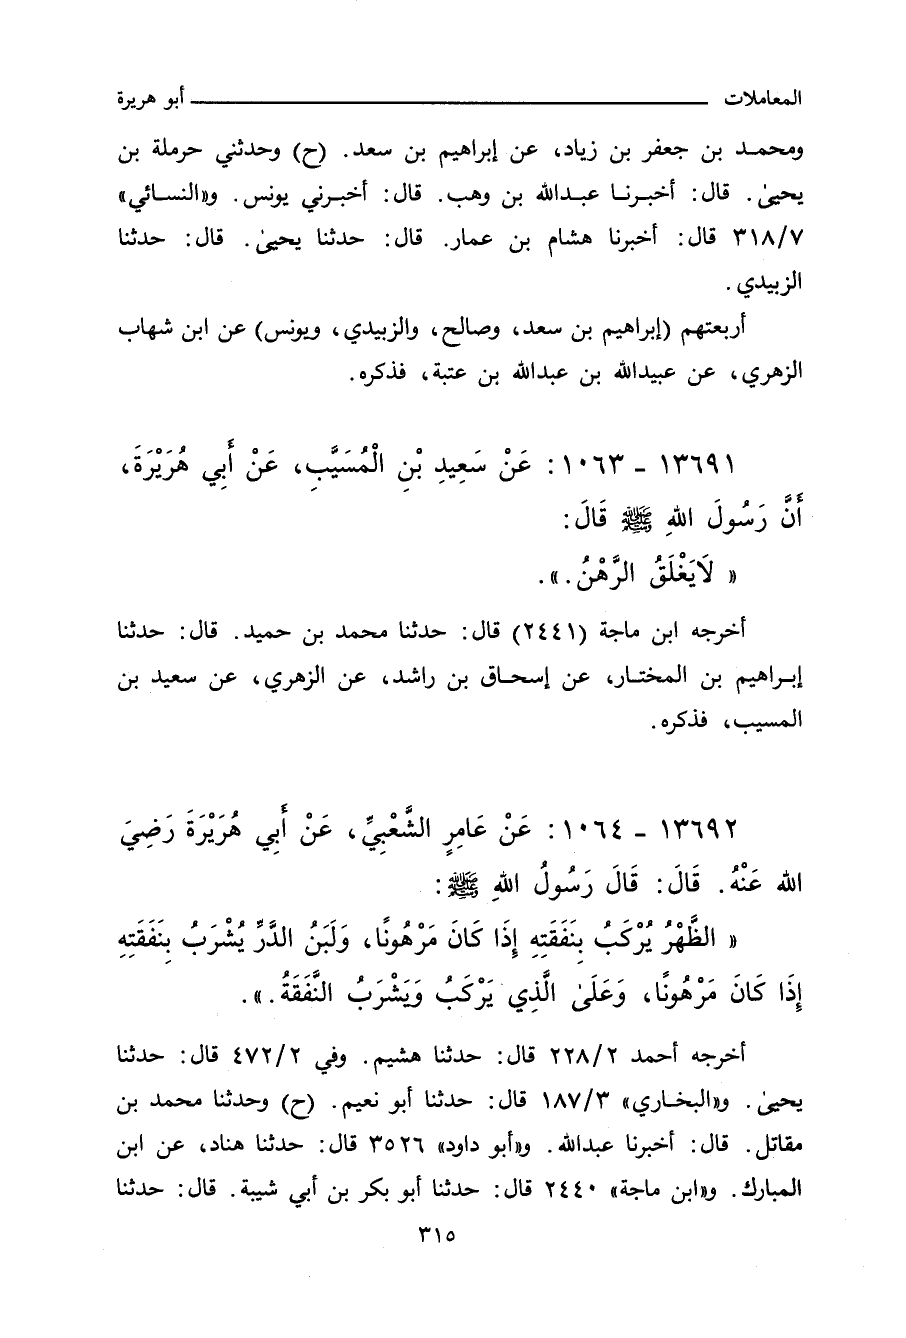 المعاملات ــــــــــــــــــــ أبو هريرة
ومحمـد بن جعفر بن زياد، عن إبراهيم بن سعد. (ح) وحدثني حرملة بن
يحيىٰ. قال: أخبـرنـا عبـدالله بن وهب. قال: أخبـرني يونس. و«النسـائي»
٣١٨/٧ قال: أخبرنا هشام بن عمار. قال: حدثنا يحيىٰ. قال: حدثنا
الزبيدي.
أربعتهم (إبراهيم بن سعد، وصالح، والزبيدي، ويونس) عن ابن شهاب
الزهري، عن عبيدالله بن عبدالله بن عتبة، فذكره.
١٣٦٩١ - ١٠٦٣: عَنْ سَعِيدِ بْنِ الْمُسَيَّبِ، عَنْ أَبِي هُرَيْرَةَ،
أَنَّ رَسُولَ اللهِ ﷺ قَالَ:
« لَايَغْلَقُ الرَّهْنُ.».
أخرجه ابن ماجة (٢٤٤١) قال: حدثنا محمد بن حميد. قال: حدثنا
إبـراهيم بن المختـار، عن إسحـاق بن راشد، عن الزهري، عن سعيد بن
المسيب، فذكره.
١٣٦٩٢ - ١٠٦٤: عَنْ عَامِرٍ الشَّعْبِيِّ، عَنْ أَبِي هُرَيْرَةَ رَضِيَ
الله عَنْهُ. قَالَ: قَالَ رَسُولُ اللهِ ﷺ:
« الظَّهْرُ يُرْكَبُ بِنَفَقَتِهِ إِذَا كَانَ مَرْهُونًا، وَلَبَنُ الدَّرِّ يُشْرَبُ بِنَفَقَتِهِ
إِذَا كَانَ مَرْهُونًا، وَعَلَىٰ الَّذِي يَرْكَبُ وَيَشْرَبُ النَّفَقَةُ.».
أخرجه أحمد ٢٢٨/٢ قال: حدثنا هشيم. وفي ٤٧٢/٢ قال: حدثنا
يحيىٰ. و«البخـاري» ١٨٧/٣ قال: حدثنا أبو نعيم. (ح) وحدثنا محمد بن
مقاتل. قال: أخبرنا عبدالله. و«أبو داود» ٣٥٢٦ قال: حدثنا هناد، عن ابن
المبارك. و«ابن ماجة» ٢٤٤٠ قال: حدثنا أبو بكر بن أبي شيبة. قال: حدثنا
٣١٥